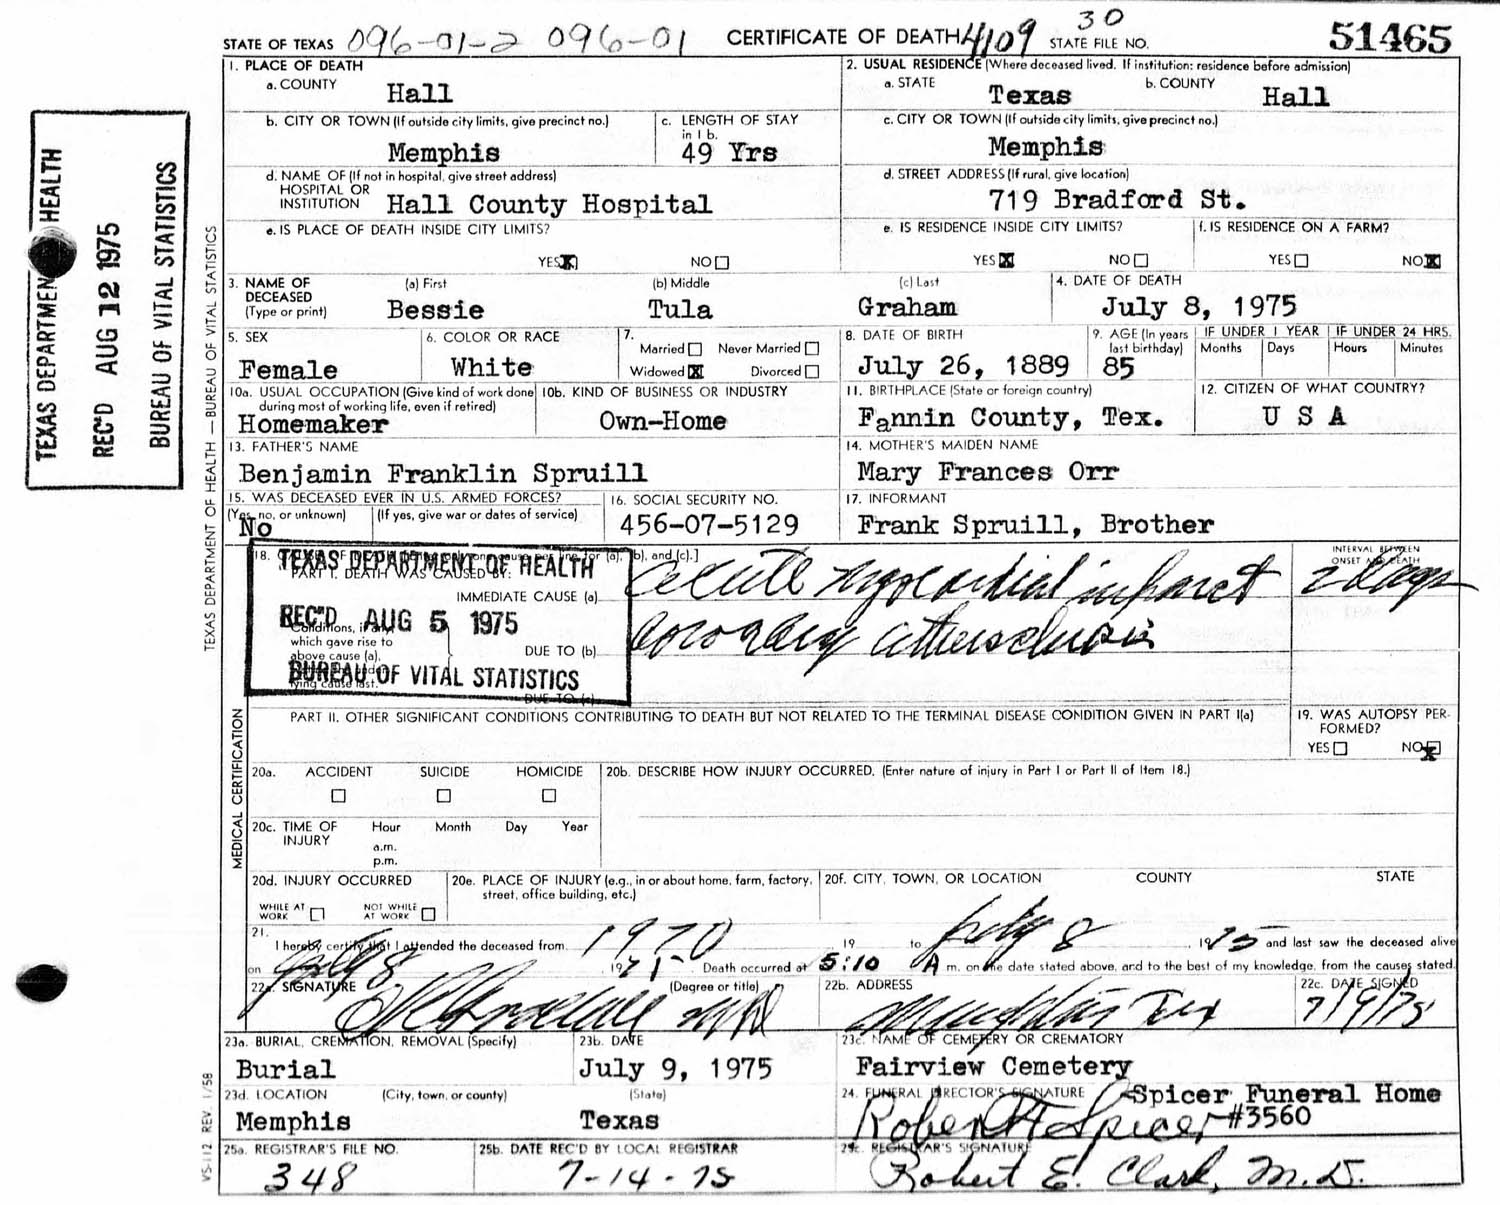 STATE OF TEXAS 096-01-2 096-01 CERTIFICATE OF DEATH 4109 30 STATE FILE NO. 51465
1. PLACE OF DEATH
a. COUNTY Hall
2. USUAL RESIDENCE (Where deceased lived. If institution: residence before admission)
a. STATE Texas b. COUNTY Hall
b. CITY OR TOWN (If outside city limits, give precinct no.) Memphis
c. LENGTH OF STAY in 1 b. 49 Yrs
c. CITY OR TOWN (If outside city limits, give precinct no.)
Memphis
d. NAME OF (If not in hospital, give street address)
HOSPITAL OR
INSTITUTION Hall County Hospital
d. STREET ADDRESS (If rural, give location)
719 Bradford St.
e. IS PLACE OF DEATH INSIDE CITY LIMITS?
YES X NO
e. IS RESIDENCE INSIDE CITY LIMITS?
YES X NO
f. IS RESIDENCE ON A FARM?
YES NO X
3. NAME OF DECEASED (Type or print)
(a) First Bessie
(b) Middle Tula
(c) Last Graham
4. DATE OF DEATH
July 8, 1975
5. SEX
Female
6. COLOR OR RACE
White
7.
Married Never Married
Widowed X Divorced
8. DATE OF BIRTH
July 26, 1889
9. AGE (In years last birthday)
85
IF UNDER 1 YEAR
Months Days
IF UNDER 24 HRS.
Hours Minutes
10a. USUAL OCCUPATION (Give kind of work done during most of working life, even if retired)
Homemaker
10b. KIND OF BUSINESS OR INDUSTRY
Own-Home
11. BIRTHPLACE (State or foreign country)
Fannin County, Tex.
12. CITIZEN OF WHAT COUNTRY?
U S A
13. FATHER'S NAME
Benjamin Franklin Spruill
14. MOTHER'S MAIDEN NAME
Mary Frances Orr
15. WAS DECEASED EVER IN U.S. ARMED FORCES?
(Yes, no, or unknown) (If yes, give war or dates of service)
No
16. SOCIAL SECURITY NO.
456-07-5129
17. INFORMANT
Frank Spruill, Brother
18. (a), (b), and (c).]
PART I. DEATH WAS CAUSED BY:
IMMEDIATE CAUSE (a) Acute myocardial infarct
INTERVAL BETWEEN ONSET AND DEATH
2 days
Conditions, if any, which gave rise to above cause (a),
lying cause last.
DUE TO (b) Coronary atherosclerosis
DUE TO (c)
TEXAS DEPARTMENT OF HEALTH
REC'D AUG 5 1975
BUREAU OF VITAL STATISTICS
PART II. OTHER SIGNIFICANT CONDITIONS CONTRIBUTING TO DEATH BUT NOT RELATED TO THE TERMINAL DISEASE CONDITION GIVEN IN PART I(a)
19. WAS AUTOPSY PERFORMED?
YES NO X
20a. ACCIDENT SUICIDE HOMICIDE
20b. DESCRIBE HOW INJURY OCCURRED. (Enter nature of injury in Part I or Part II of Item 18.)
20c. TIME OF INJURY Hour Month Day Year
a.m.
p.m.
20d. INJURY OCCURRED
WHILE AT WORK NOT WHILE AT WORK
20e. PLACE OF INJURY (e.g., in or about home, farm, factory, street, office building, etc.)
20f. CITY, TOWN, OR LOCATION COUNTY STATE
21.
I hereby certify that I attended the deceased from 1970 19 to July 8, 1975 and last saw the deceased alive
on July 8 1975. Death occurred at 5:10 A m. on the date stated above, and to the best of my knowledge, from the causes stated.
22a. SIGNATURE (Degree or title)
22b. ADDRESS
Memphis Tex
22c. DATE SIGNED
7/9/75
23a. BURIAL, CREMATION, REMOVAL (Specify)
Burial
23b. DATE
July 9, 1975
23c. NAME OF CEMETERY OR CREMATORY
Fairview Cemetery
23d. LOCATION (City, town, or county) (State)
Memphis Texas
24. FUNERAL DIRECTOR'S SIGNATURE Spicer Funeral Home
Robert Spicer #3560
25a. REGISTRAR'S FILE NO.
348
25b. DATE REC'D BY LOCAL REGISTRAR
7-14-75
25c. REGISTRAR'S SIGNATURE
Robert E. Clark, M.D.
TEXAS DEPARTMENT HEALTH
REC'D AUG 12 1975
BUREAU OF VITAL STATISTICS
TEXAS DEPARTMENT OF HEALTH — BUREAU OF VITAL STATISTICS
MEDICAL CERTIFICATION
VS-112 REV 1/58